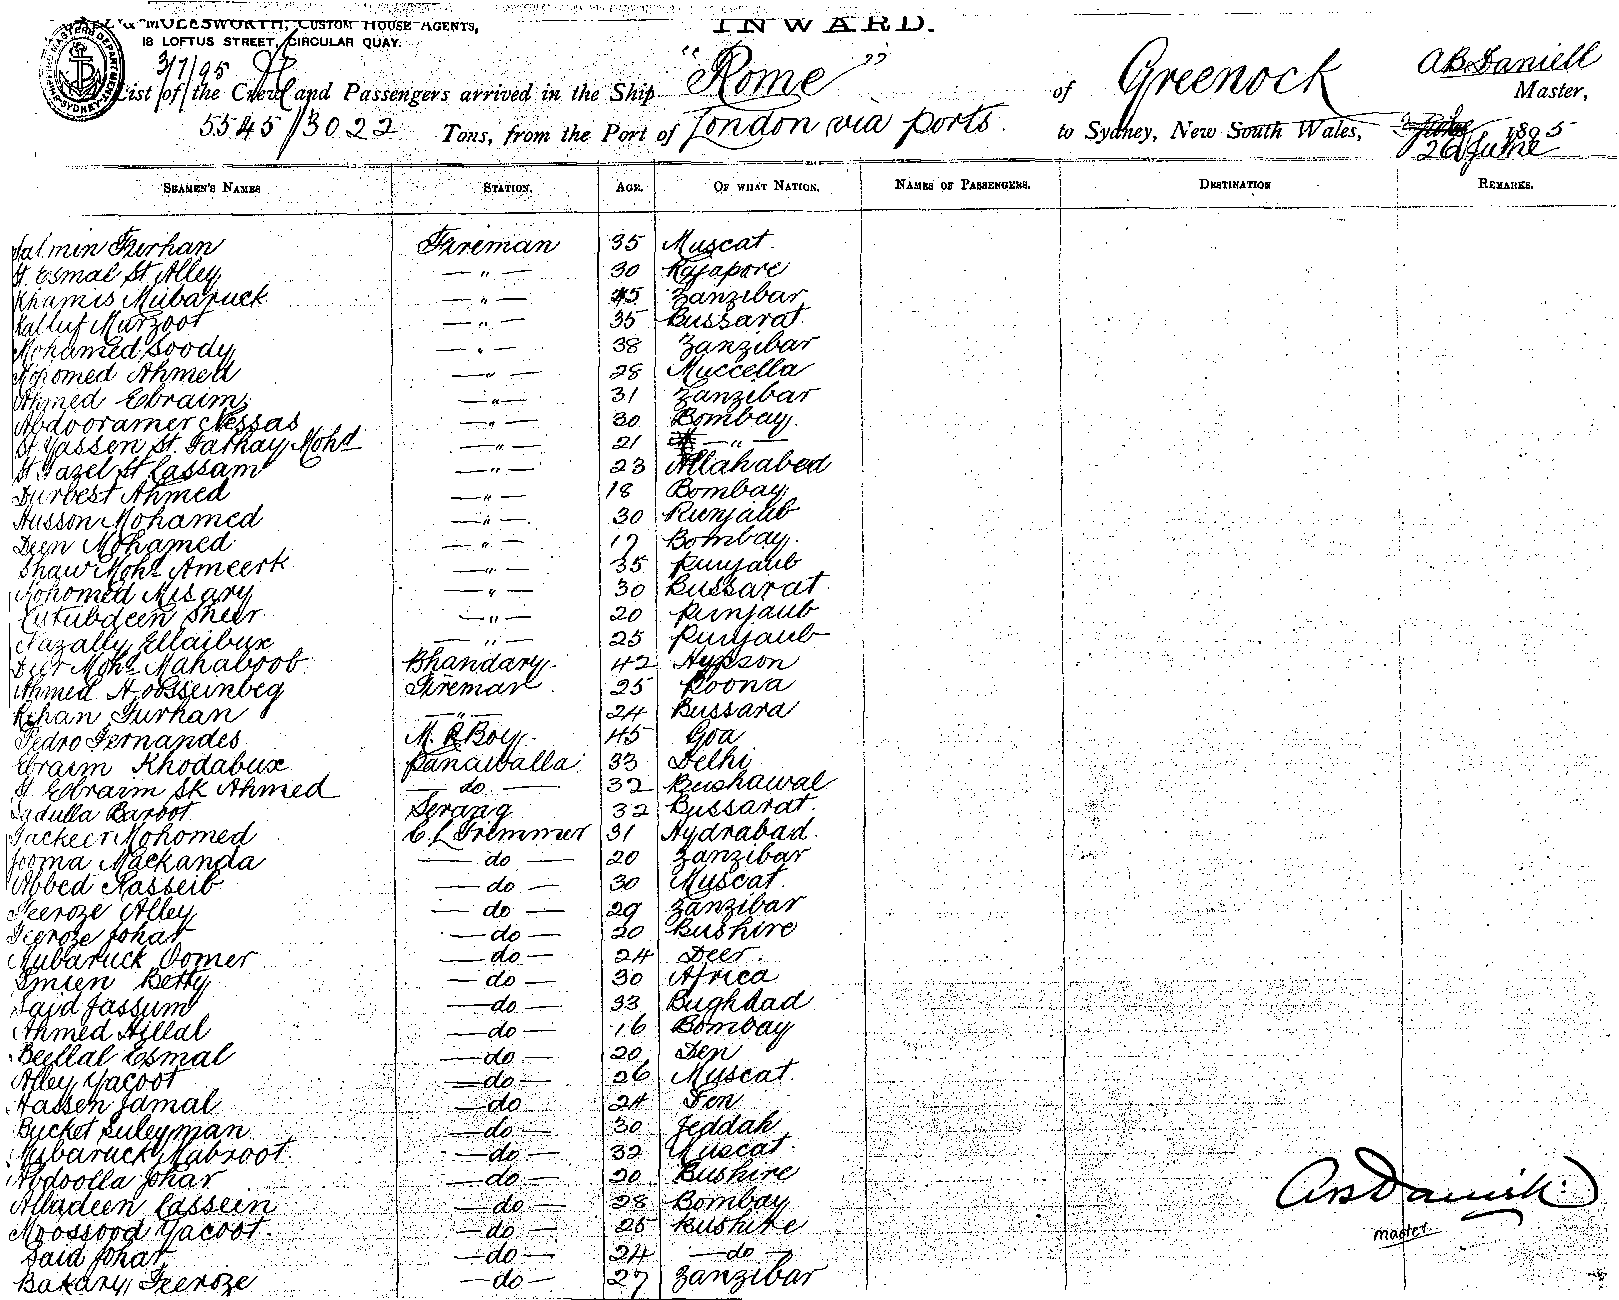 & MOLESWORTH, CUSTOM HOUSE AGENTS,
18 LOFTUS STREET, CIRCULAR QUAY.
INWARD.
3/7/95
List of the Crew and Passengers arrived in the Ship "Rome" of Greenock A B Daniell Master,
5545/3022 Tons, from the Port of London via ports to Sydney, New South Wales, 26 June 1895
SEAMEN'S NAMES STATION. AGE. OF WHAT NATION. NAMES OF PASSENGERS. DESTINATION REMARKS.
Salmin Ferhan Fireman 35 Muscat
St Esmal St Alley — " — 30 Rajapore
Khamis Mubaruck — " — 45 Zanzibar
Kalluf Murzoot — " — 35 Bussarat
Mohamed Soody — " — 38 Zanzibar
Mohomed Ahmed — " — 28 Muccella
Ahmed Ebraim — " — 31 Zanzibar
Abdooramer Nessas — " — 30 Bombay
St Yassen St. Farkay Mohd — " — 21 — " —
St Fazel St Cassam — " — 23 Allahabed
Durbest Ahmed — " — 18 Bombay
Husson Mohamed — " — 30 Punjaub
Deen Mohamed — " — 17 Bombay
Shaw Mohd Ameerk — " — 35 Punjaub
Mohomed Misary — " — 30 Bussarat
Cutubdeen Sheer — " — 20 Punjaub
Nazally Ellaibux — " — 25 Punjaub
Deer Mohd Mahaboob Bhandary 42 Hyпson
Ahmed Hoosseinbeg Fireman 25 Poona
Rehan Furhan — " — 24 Bussara
Pedro Fernandes M. R Boy 45 Goa
Ebraim Khodabux Panawalla 33 Delhi
St Ebraim Sk Ahmed — do — 32 Bushawal
Sadulla Baroot Serang 32 Bussarat
Fackeer Mohomed C. L Trimmer 31 Hydrabad
Jooma Mackanda — do — 20 Zanzibar
Abbed Nasseib — do — 30 Muscat
Feeroze Alley — do — 29 Zanzibar
Feeroze Johar — do — 20 Bushire
Mubaruck Oomer — do — 24 Deer
Smien Betty — do — 30 Africa
Said Jassum — do — 33 Bughdad
Ahmed Hillal — do — 16 Bombay
Beellal Esmal — do — 20 Den
Alley Yacoot — do — 26 Muscat
Hassen Jamal — do — 24 Fen
Bucket Suleyman — do — 30 Jeddah
Mubaruck Mabroot — do — 32 Muscat
Abdoolla Johar — do — 20 Bushire
Alladeen Cassein — do — 28 Bombay
Moossood Yacoot — do — 25 Bushire
Said Johar — do — 24 — do —
Bakary Feeroze — do — 27 Zanzibar
A B Daniell
master